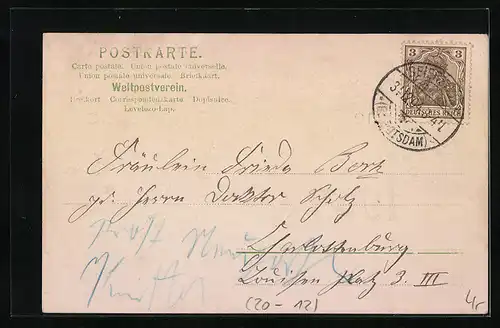 POSTKARTE.
Carte postale. Union postale universelle.
Union postale universale Briefkaart.
Weltpostverein.
Brevkort Correspondenzkarte Dopisnice.
Levelező-Lap.
3 3
DEUTSCHES REICH
(POTSDAM)
Fräulein Frieda
p. Herrn Doktor Scholz
Charlottenburg
Louisen Platz 3. III
(20-12)